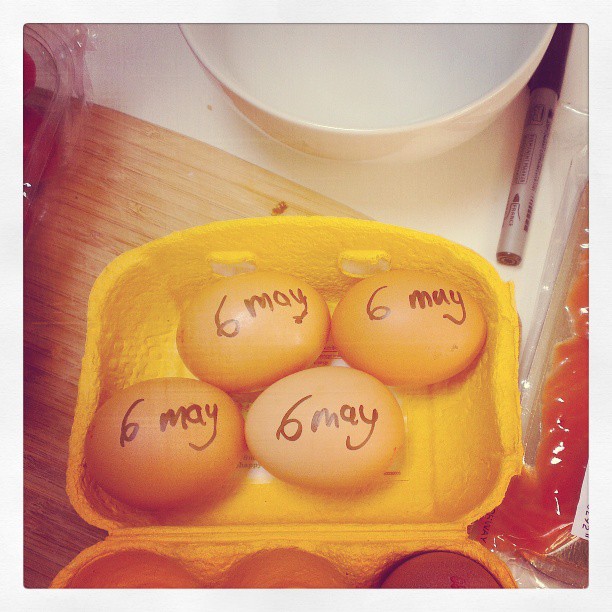 6 may
6 may
6 may
6 may